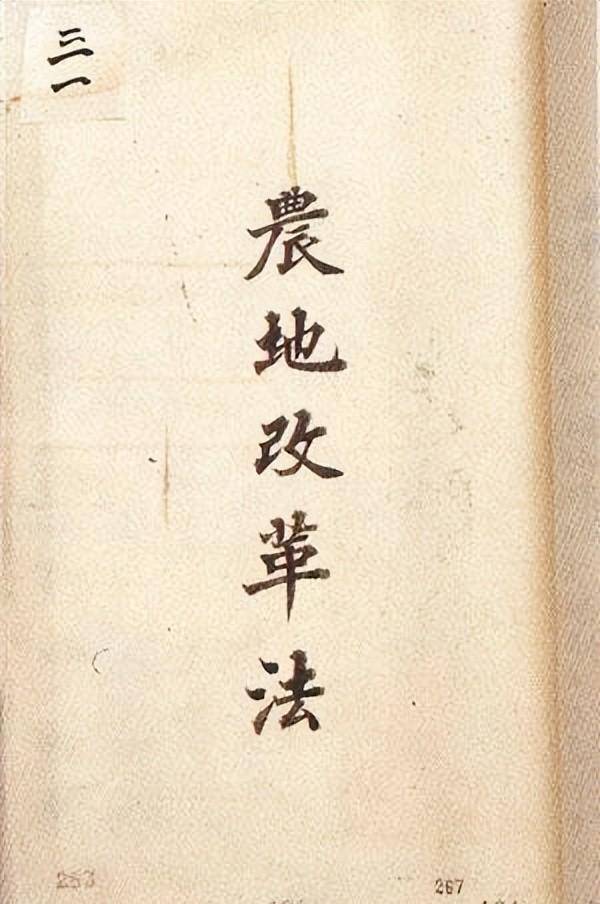 三一
農地改革法
267